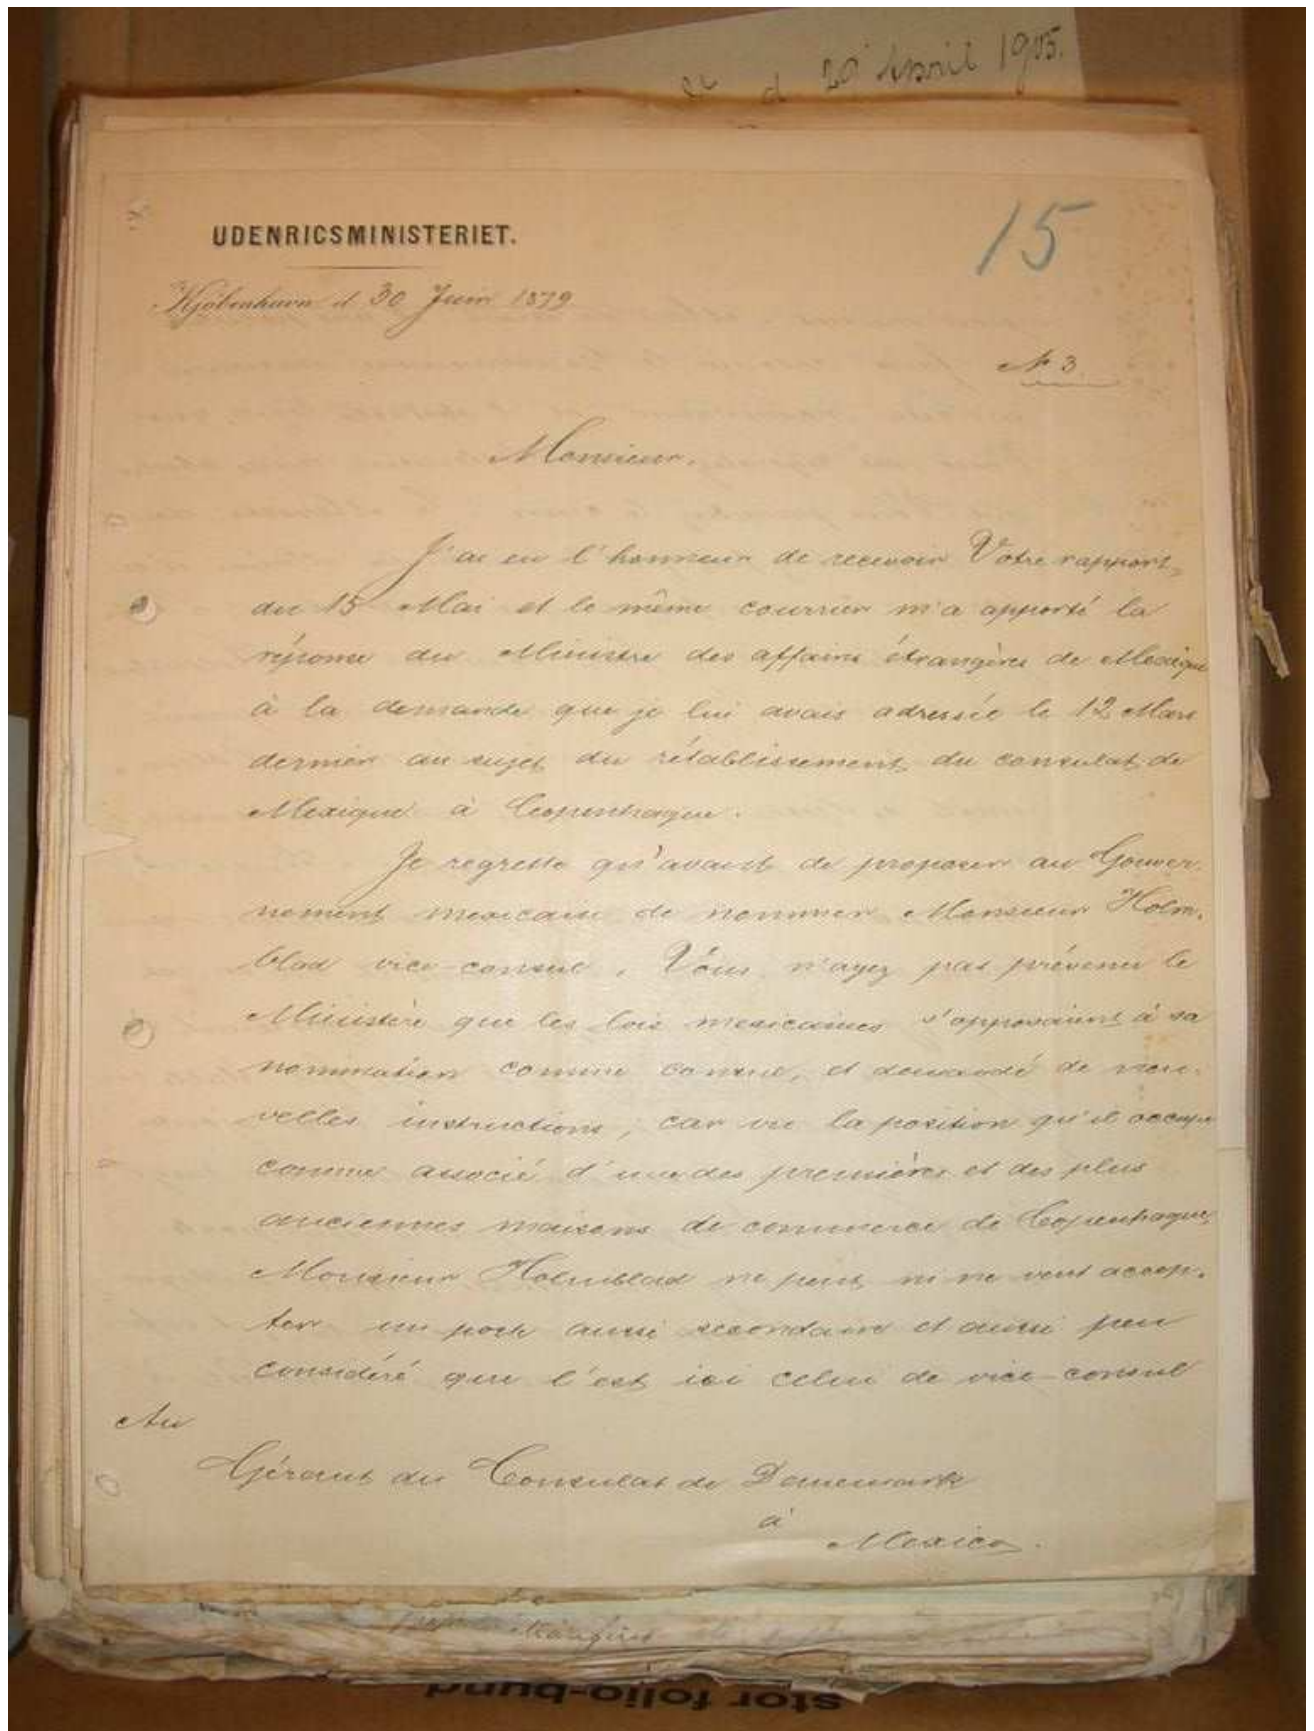 d 20 April 1905.
UDENRIGSMINISTERIET.
15
Kjöbenhavn d 30 Juin 1879
No 3.
Monsieur,
J'ai eu l'honneur de recevoir Votre rapport
du 15 Mai et le même courrier m'a apporté la
réponse du Ministre des affaires étrangères de Mexique
à la demande que je lui avais adressée le 12 Mars
dernier au sujet du rétablissement du consulat de
Mexique à Copenhague.
Je regrette qu'avant de proposer au Gouver-
nement mexicain de nommer Monsieur Holm-
blad vice-consul, Vous n'ayez pas prévenu le
Ministère que les lois mexicaines s'opposaient à sa
nomination comme consul, et demandé de nou-
velles instructions; car vu la position qu'il occupe
comme associé d'une des premières et des plus
anciennes maisons de commerce de Copenhague,
Monsieur Holmblad ne peut ni ne veut accep-
ter un poste aussi secondaire et aussi peu
considéré que l'est ici celui de vice-consul
Au
Gérant du Consulat de Danemark
à
Mexico.
stor folio-bund